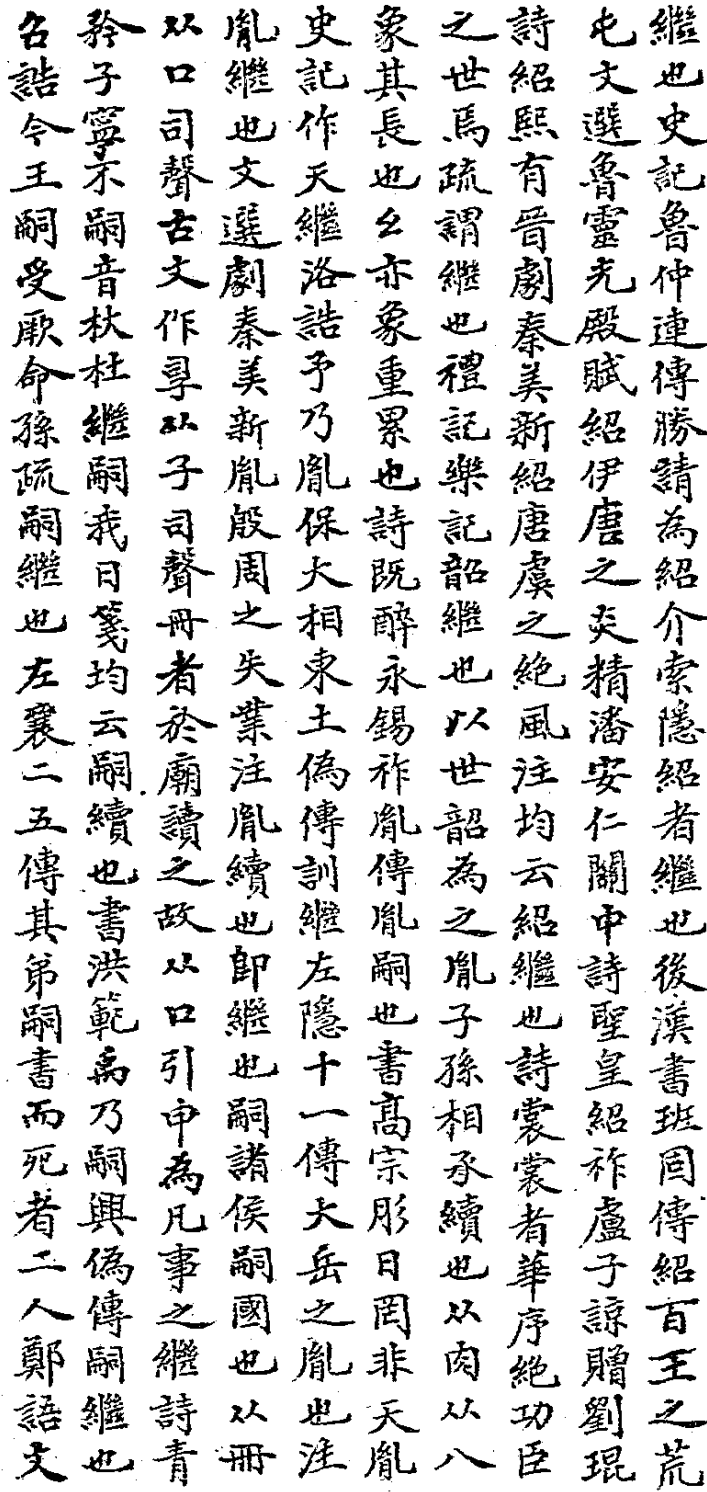 繼也史記魯仲連傳勝請為紹介索隱紹者繼也後漢書班固傳紹百王之荒
屯文選魯靈光殿賦紹伊唐之炎精潘安仁關中詩聖皇紹祚盧子諒贈劉琨
詩紹熙有晉劇秦美新紹唐虞之絕風注均云紹繼也詩裳裳者華序絕功臣
之世焉疏謂繼也禮記樂記韶繼也以世韶為之胤子孫相承續也从肉从八
象其長也幺亦象重累也詩既醉永錫祚胤傳胤嗣也書高宗肜日罔非天胤
史記作天繼洛誥予乃胤保大相東土偽傳訓繼左隱十一傳大岳之胤也注
胤繼也文選劇秦美新胤殷周之失業注胤續也卽繼也嗣諸侯嗣國也从冊
从口司聲古文作孠从子司聲冊者於廟讀之故从口引申為凡事之繼詩青
矜子寧不嗣音杕杜繼嗣我日箋均云嗣續也書洪範禹乃嗣興偽傳嗣繼也
召誥今王嗣受厥命孫疏嗣繼也左襄二五傳其弟嗣書而死者二人鄭語文